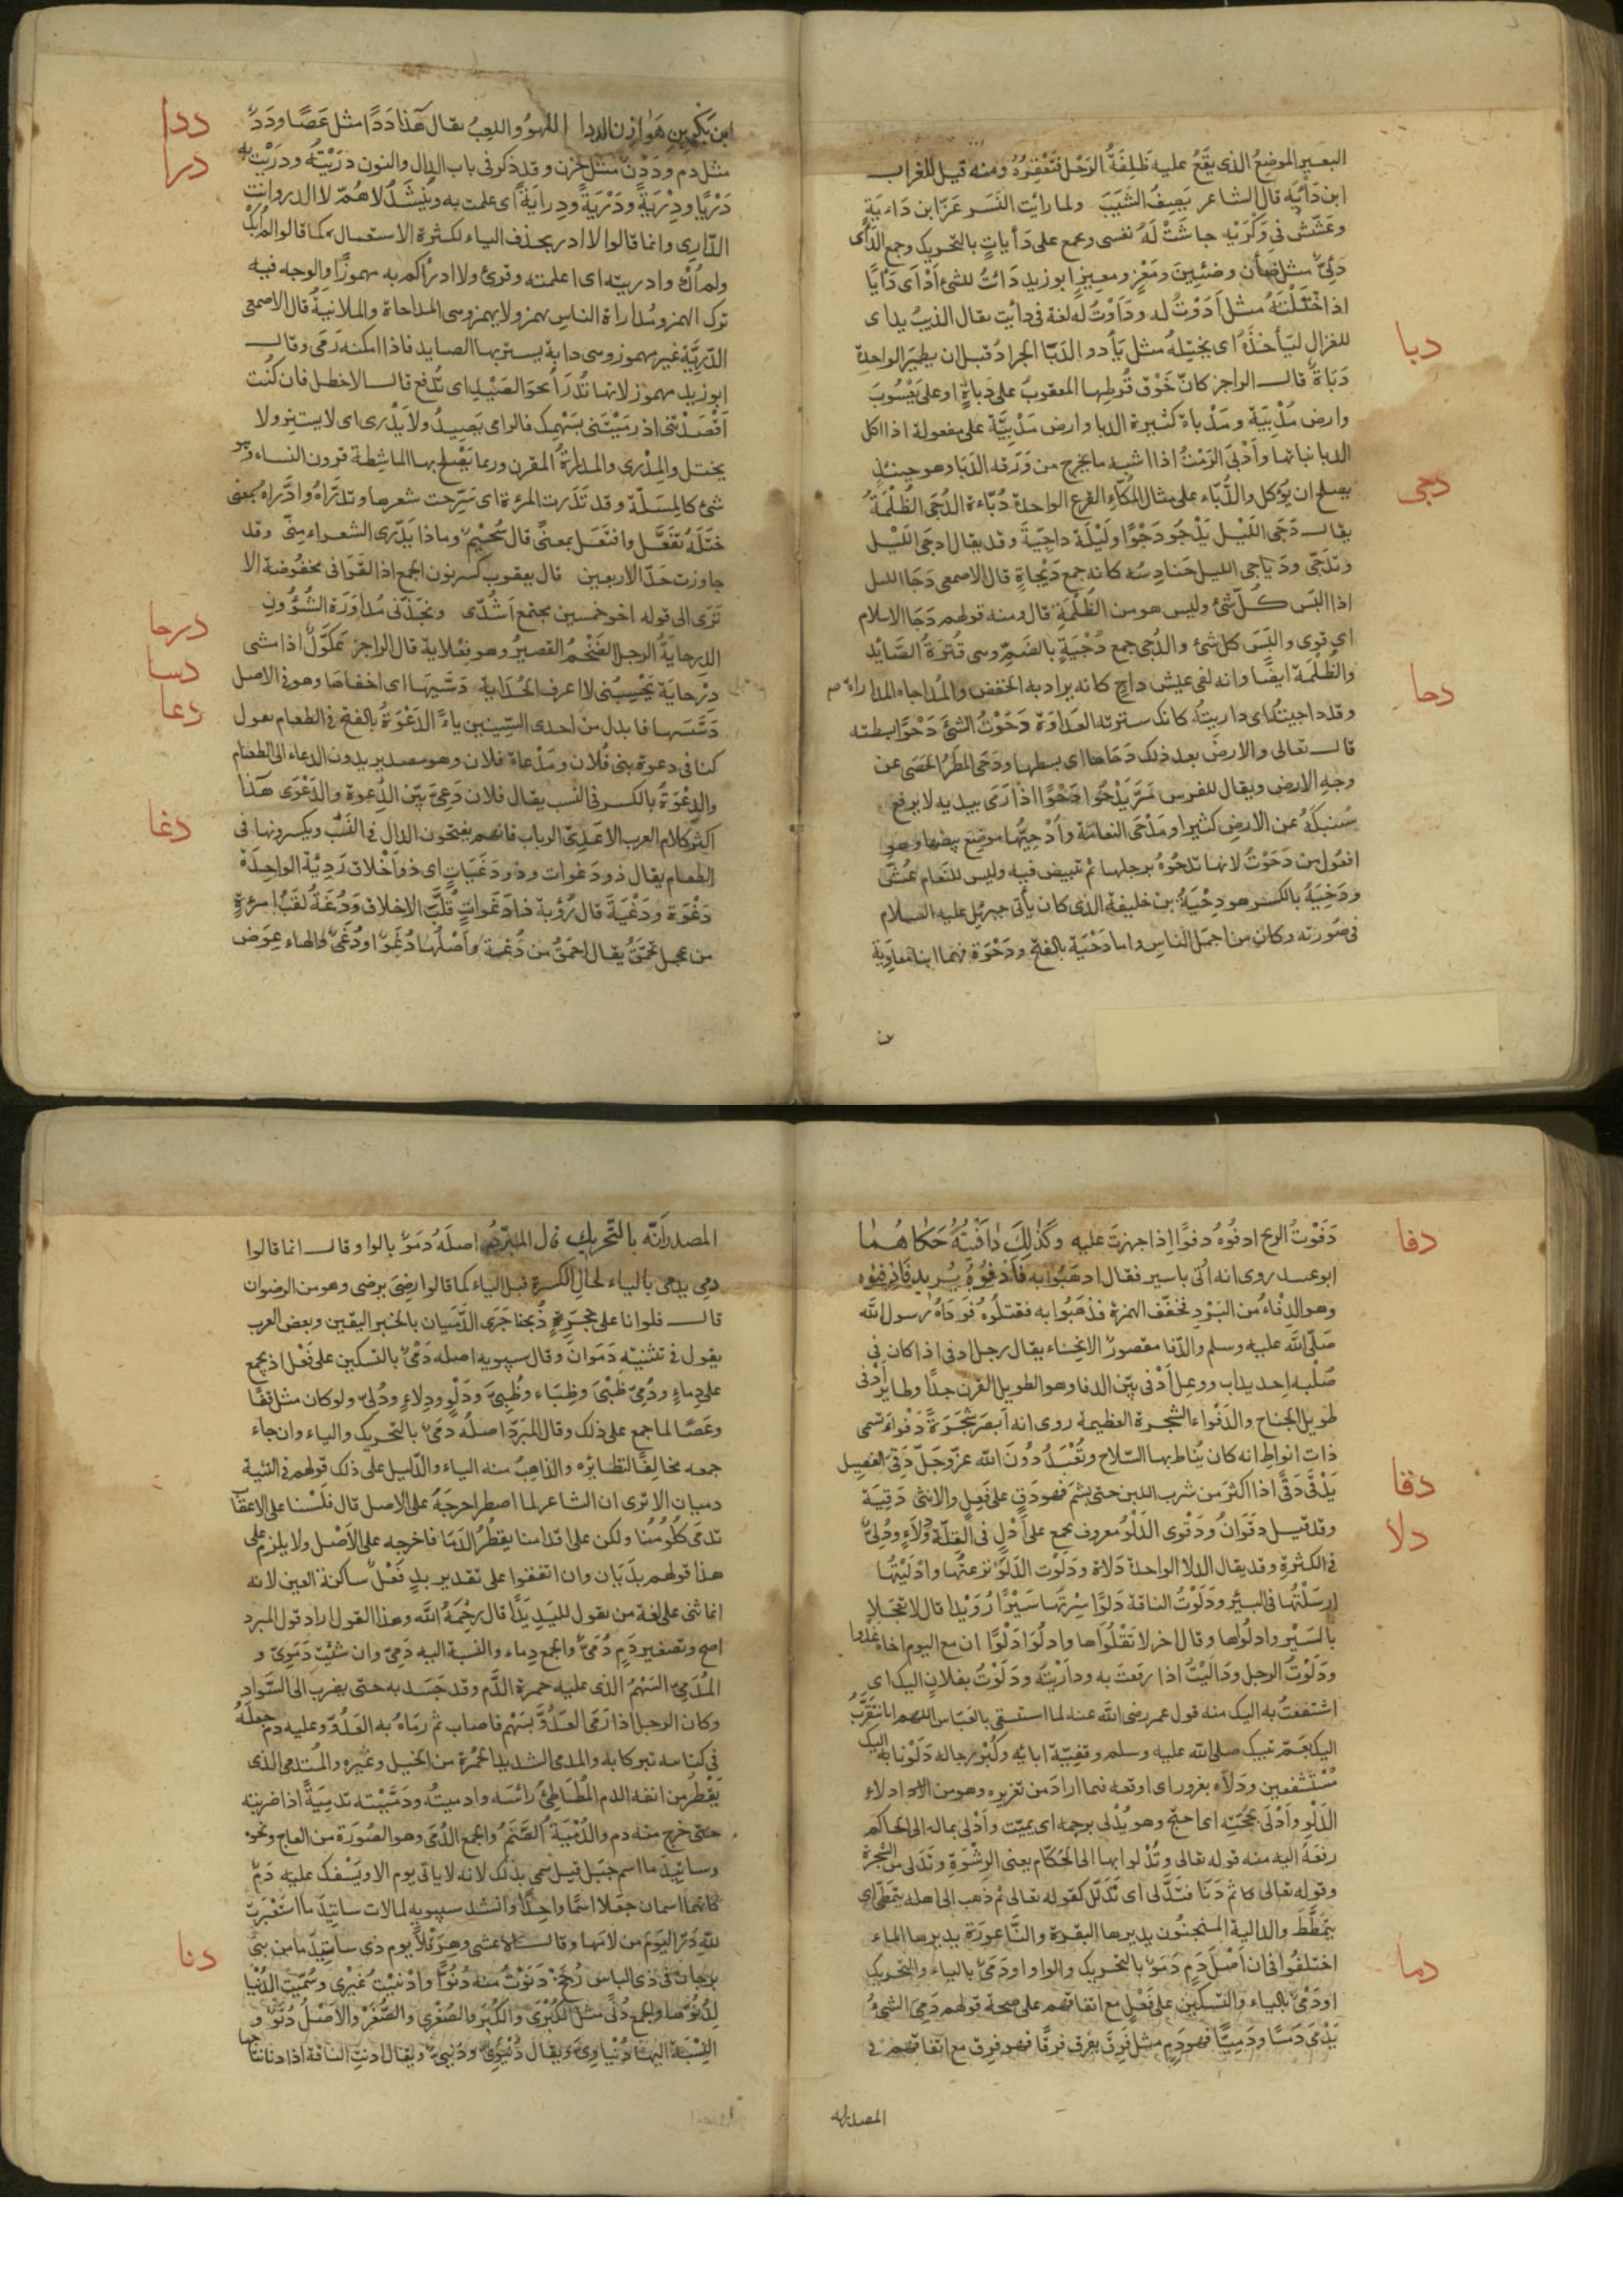 البعير الموضع الذى يقع عليه ظَلِفَةُ الرَحْل فتَعْقِرُهُ ومنه قيل للغراب
ابن دَأيَه قال الشاعر يَصِفُ الشَيْبَ ولما رايْت النَسر عَزّ ابن دَاءيَةٍ
وعَشّش فى وَكْرَيْهِ جاشَتْ لَهُ نفسى ويجمع على دَأياتٍ بالتحريك وجمع الدَأى
دَئِىٌّ مثل ضأن وضَئِينَ ومَعْزٍ ومعيزٍ ابو زيد دَائتُ للشئ أدْأى دَأيًا
اذا خْتَلْتَهُ مثل أدَوْتُ له ودَأوْتُ لَه لغة فى دأيت يقال الذيبُ يداى
دبا
للغزال ليَأخذَهُ اى يختِلهُ مثل يَأدو الدَبَا الجرادُ قبل ان يطيرَ الواحدة
دَبَاةٌ قال الراجز كانّ خَوْق قُرطِها المعقوب على دَباةٍ او على يَعْسُوبَ
وارض مُدْبِيَة ومَدْباة كثيرة الدبا وارض مَدْبِيَّة على مفعولة اذا اكل
الدبا نباتها وأدْبَى الرَمْثُ اذا اشبه ما يخرج من وَرَقه الدَبَا وهو حينئذٍ
دجى
يصلح ان يُؤكل والدُّبّاء على مثال المُكّاءِ القرع الواحدة دُبّاءة الدُجَى الظُلْمَةُ
يقال دَجَى اللَيْل يَدْجُو دَجْوًا ولَيْلَة داجِيَةً وقد يقال ادجَى اللَيْل
وتدَجّى ودَياجى الليل حَنادِسُه كانه جمع دَيْجاةٍ قال الاصمعى دَجَا الليل
اذا البَس كلّ شئ وليس هو من الظُلْمَةِ قال ومنه قولهم دَجَا الاسلام
اى قوى والبَسَ كل شئ والدُجى جمع دُجْيَةٍ بالضَمِّ وهى قُتْرَةُ الصَائدِ
دحا
والظُلْمَة ايضًا وانه لفى عيش داجٍ كانه يراد به الخفض والمُداجاه المداراة
وقد داجيتُه اى داريتُه كانك سترته العَداوَة دَحَوْتُ الشئ دَحْوًا بسطته
قال تعالى والارضَ بعد ذلك دَحَاها اى بسطها ودَحَى المَطَرُ الحَصَى عن
وجه الارض ويقال للفرس مَرَّ يَدْحُوا دَحْوًا اذا رَمَى بيديه لا يرفع
سُنبكَهُ عن الارضِ كثيرا ومَدْحَى النعامَة وأدْحِيُّها موضع بيضها وهو
افعُول من دَحَوْتُ لانها تدحُوهُ برجلها ثم تبيض فيه وليس للنَعام عُشٌّ
ودِحْيَةُ بالكسر هو دِحْيَةُ بن خليفة الذى كان يأتى جبريل عليه السلام
فى صُورَته وكان من اجمل الناسِ واما دَحْيَة بالفتح ودَحْوَة فهما ابنا معاوية
بن
ددا
ابن بَكْرِ بن هَوَازِن الددا اللهوُ واللعِبُ يقال هَذا دَدًا مثل عَصًا ودَدٌ
درا
مثل دم ودَدَنٌ مثل حزن وقد ذكر فى باب الدال والنون دَرَيْتُه ودَرَيْتُ به
دَرْيًا ودِرْيَةً ودَرْيَةً ودِرايَةً اى علمت به ويُنْشَدُ لاهُمّ لا ادرى وانت
الدّارِى وانما قالوا لا ادرِ بحذف الياء لكثرة الاستعمال كما قالوا لم اُبَل
ولم أكُ وادريته اى اعلمته وقرئ ولا ادرأكم به مهموزًا والوجه فيه
ترك الهمز ومُداراة الناس يهمز ولا يهمز وهى المداجاة والملايَنةُ قال الاصمعى
الدَرِيَّة غير مهموز وهى دابة يستتر بها الصايد فاذا امكنه رَمَى وقال
ابو زيد مهموز لانها تُدرَأ نحو الصَيْد اى تُدفع قال الاخطل فان كُنت
اَقْصَدْتنى اذ رمَيْتَنى بسَهْمِك فالرامى يَصِيدُ ولا يَدْرِى اى لا يستتر ولا
يختل والمِدْرى والمدراةُ القرن وربما يَصْلح بها الماشِطة قرون النساء وهو
شئ كالمسَلّة وقد تَدَرت المرءة اى سَرّحت شعرها وتَدَرّاهُ وادَّراه بمعنى
خَتَلَهُ تَفَعَّل وافتَعَل بمعنًى قال سُحَيْم وما ذا يَدّرِى الشعراء مِنّى وقد
جاوزت حَدّ الاربعين قال يعقوب كسر نون الجمع اذ القَوَافى مخفوضة الا
درحا
تَرَى الى قوله اخو خمسين مجتمع اَشُدّى ونَجَّذَنى مُداوَرَة الشُؤُونِ
الدِرحايَةُ الرجل الضَخْمُ القصيرُ وهو فِعْلاية قال الراجز عَكَوَّكٌ اذا مشى
دسا
دِرْحايَة يَحْسِبُنى لا اعرف الحُدَايَة دَسّيهَا اى اخفاها وهو فى الاصل
دعا
دَسَّسَها فابدل من احدى السِّينين ياءً الدَعْوَةُ بالفتح فى الطعام يقول
كنا فى دعوة بنى فُلان ومَدْعاة فلان وهو مصدر يريدون الدعاءَ الى الطعام
والدِعْوَةُ بالكسر فى النسب يقال فلان دَعِىّ بَيّن الدِعوة والدَعْوَى هَذا
دغا
اكثر كلام العرب الا عَدِىّ الرباب فانهم يفتحون الدال فى النَسَب ويكسرونها فى
الطعام يقال ذو دَغوات وذو دَغَيَاتٍ اى ذو اَخْلاق رَديّة الواحِدَة
دَغْوَة ودَغْيَة قال رُؤبة ذا دَغَواتٍ قُلَّبَ الاخلاق ودُغَةُ لقَبُ امرَءةٍ
من عجل تُحَمَّقُ يقال احمَقُ من دُغة واَصْلُها دُغَوٌ او دُغَىٌ والهاء عِوَض
دفا
دَفَوْتُ الجريح ادفُوهُ دفوًا اذا جهزتَ عليه وَكَذَلِكَ دَافَيتُهُ حَكاهُما
ابو عبيد روى انه اُتى باسير فقال اذهَبُوا به فَأدفُوهُ يُريد فَادْفِئُوه
وهو الدِفاءُ من البَرْد فخفّف الهمزة فذهَبُوا به فقتلُوُه فوَدَاهُ رسول الله
صَلّى الله عليه وسلم والدّفا مقصورٌ الانحِناء يقال رجل ادفى اذا كان فى
صُلْبِه احديداب ووعِل أدْفى بيّن الدفا وهو الطويل القرن جدًا وطاير أدْفى
طويل الجناح والدَفْواء الشجرة العظيمة روى انه اَبصَر شَجَرَةً دَفْواءَ تسمى
ذات انواطٍ انه كان يُناط بها السّلاح وتُعْبَدُ دُونَ الله عزّ وجَلّ دَقِى الفصيل
دقا
يَدْقَى دَقًى اذا اكثرَ من شرب اللبن حتى بشمَ فهو دَقٍ على فَعِلٍ والانثى دَقِيَة
دلا
وقد قيل دقوانُ ودَقْوى الدَلْوُ معروف يجمع على أدْلٍ فى القِلّة ودِلاءٍ ودُلِىٌّ
فى الكثرةِ وقد يقال الدلا الواحدة دَلاة ودَلَوْت الدَلْوَ نزعتُها وادْلَيْتُها
ارسَلْتُها فى البئر ودَلَوْتُ الناقة دَلْوًا سِرْتُها سَيْرًا رُوَيْدا قال لا تعجَلا
بالسَيْر وادلُواها وقال اخر لا تَقْلُواها وادلُوَا دَلْوًا ان مع اليوم اخاهُ غدْوا
ودَلَوْتُ الرجل ودَالَيْتُ اذا رفَعتَ به ودارَيْتُه ودَلَوْتُ بفلانٍ اليك اى
استشفعتُ به اليك منه قول عمر رضى الله عنه لما استسقى بالعبّاس اللهم انا نتقَرَّبُ
اليك بعَمّ نبيك صلى الله عليه وسلم وقفِيّة ابائه وكُبْر رجاله دَلَوْنا به اليك
مُسْتشفعين ودَلاّه بغرور اى اوقعه فيما ارادَ من تغريره وهو من ادلاء
الدَلْو واَدْلَى بحُجّتِه اى احتج وهو يُدْلى برحمه اى يمتّ وأدْلَى بماله الى الحاكم
رفعَهُ اليه منه قوله تعالى وتُدْلوا بها الى الحُكّام يعنى الرِشْوَة وتَدَلى من الشجرة
وقوله تعالى ثم دَنَا فتدَلّى اى تَدَلّل كقوله تعالى ثم ذهب الى اهله يتمَطّى اى
يتمَطَّطَ والدالية المنجنُون يديرها البقرة والنَّاعورَة يديرها الماء
دما
اختلفُوا فى ان اَصْل دَمٍ دَمَوٌ بالتحريك والواو او دَمَىٌ بالياء والتحريك
او دَمْىٌ بالياء والتسكين على فَعْلٍ مع اتفاقهم على صحة قولهم دَمِىَ الشئُ
يَدْمَى دَمًا ودَمِيًّا فهو دَمٍ مثل فَرِقَ يفرق فرَقًا فهو فرِق مع اتفاقهم فى
المصدر انه
المصدر اَنّه بالتّحريك قال المبرّد اصلَهُ دَمَوٌ بالواو وقال انما قالوا
دمِى يدمى بالياء لحال الكسرة قبل الياء كما قالوا رضِىَ يرضى وهو من الرضوان
قال فلو انا على حَجَرٍ ذُبحنا جَرَى الدَّمَيان بالخبر اليقين وبعض العرب
يقول فى تثنيَتِه دَمَوانِ وقال سيبويه اصله دَمْىٌ بالتسكين على فَعْلٍ اذ يجمع
على دِماءٍ ودُمِىّ ظَبْىٍ وظِبَاء وظُبِىّ ودَلْوٍ ودِلاءٍ ودُلِىّ ولو كان مثل قفًا
وعَصًا لما جمع على ذلك وقال المبرّد اصلُه دمَىٌ بالتحريك والياء وان جاء
جمعه مخالفًا لنظائره والذاهِبُ منه الياء والدّليل على ذلك قولهم فى التثنية
دميان الا ترى ان الشاعر لما اضطر اخرجَهُ على الاصل قال فلَسْنا على الاعقاب
تدمَى كُلُومُنا ولكن على اقدامنا يقطُرُ الدَمَا فاخرجه على الاَصْل ولا يلزم على
هذا قولهم يدَيَان وان اتفقوا على تقدير يدٍ فَعْلٌ ساكنة العين لانه
انما ثنى على لغة من يقول لليَدِ يَدًا قال رحِمَهُ الله وهذا القول اراد قول المبرد
اصح وتصغير دَمٍ دُمَىٌّ والجمع دِماء والنسبة اليه دَمِىّ وان شئت دَمَوِىّ و
المُدَمّى السَهْمُ الذى عليه حمرة الدَّم وقد جَسَد به حتى يضرب الى السَّواد
وكان الرجل اذا رَمَى العَدُوَّ بسَهْم فاصاب ثم رمَاهُ به العَدُوّ وعليه دم جعلَهُ
فى كنانته تبركا به والمدمى الشديد الحُمْرة من الخيل وغيره والمُستدمى الذى
يَقْطر من انفه الدم المُطَاطِئُ رائسَه وادميتُه ودَمَّيْته تَدمِيَةً اذا ضربته
حتى خرج منه دم والدُمْيَة الصَّنَمُ والجمع الدُمَى وهو الصُوَرة من العاج ونحوه
وساتيدَما اسم جبَل قيل سمى بذلك لانه لا ياتى يوم الا ويَسْفك عليه دَمٌ
كانهما اسمان جعَلا اسمًا واحِدًا وانشد سيبويه لما رات ساتيدَما استَعْبَرت
دنا
لله دَرّ اليَوْمَ من لامَها وقال الاعشى وهِرَقْلاً يوم ذى ساتيدَما من بنى
برجان فى ذى الباس رُجَحْ دَنَوْتُ منه دُنُوًّا وادْنَيْتُ غيْرِى وسُمّيت الدُنْيا
لِدُنُوّها والجمع دُنًى مثل الكُبْرَى والكُبَر والصُغْرى والصُغَرْ والاَصْل دُنَوٌ و
النِسْبَة اليهَا دُنْياوِىّ ويقال دُنْيَوىّ ودُنْيىّ ويقال ادنتِ الناقة اذا دنا نتاجها